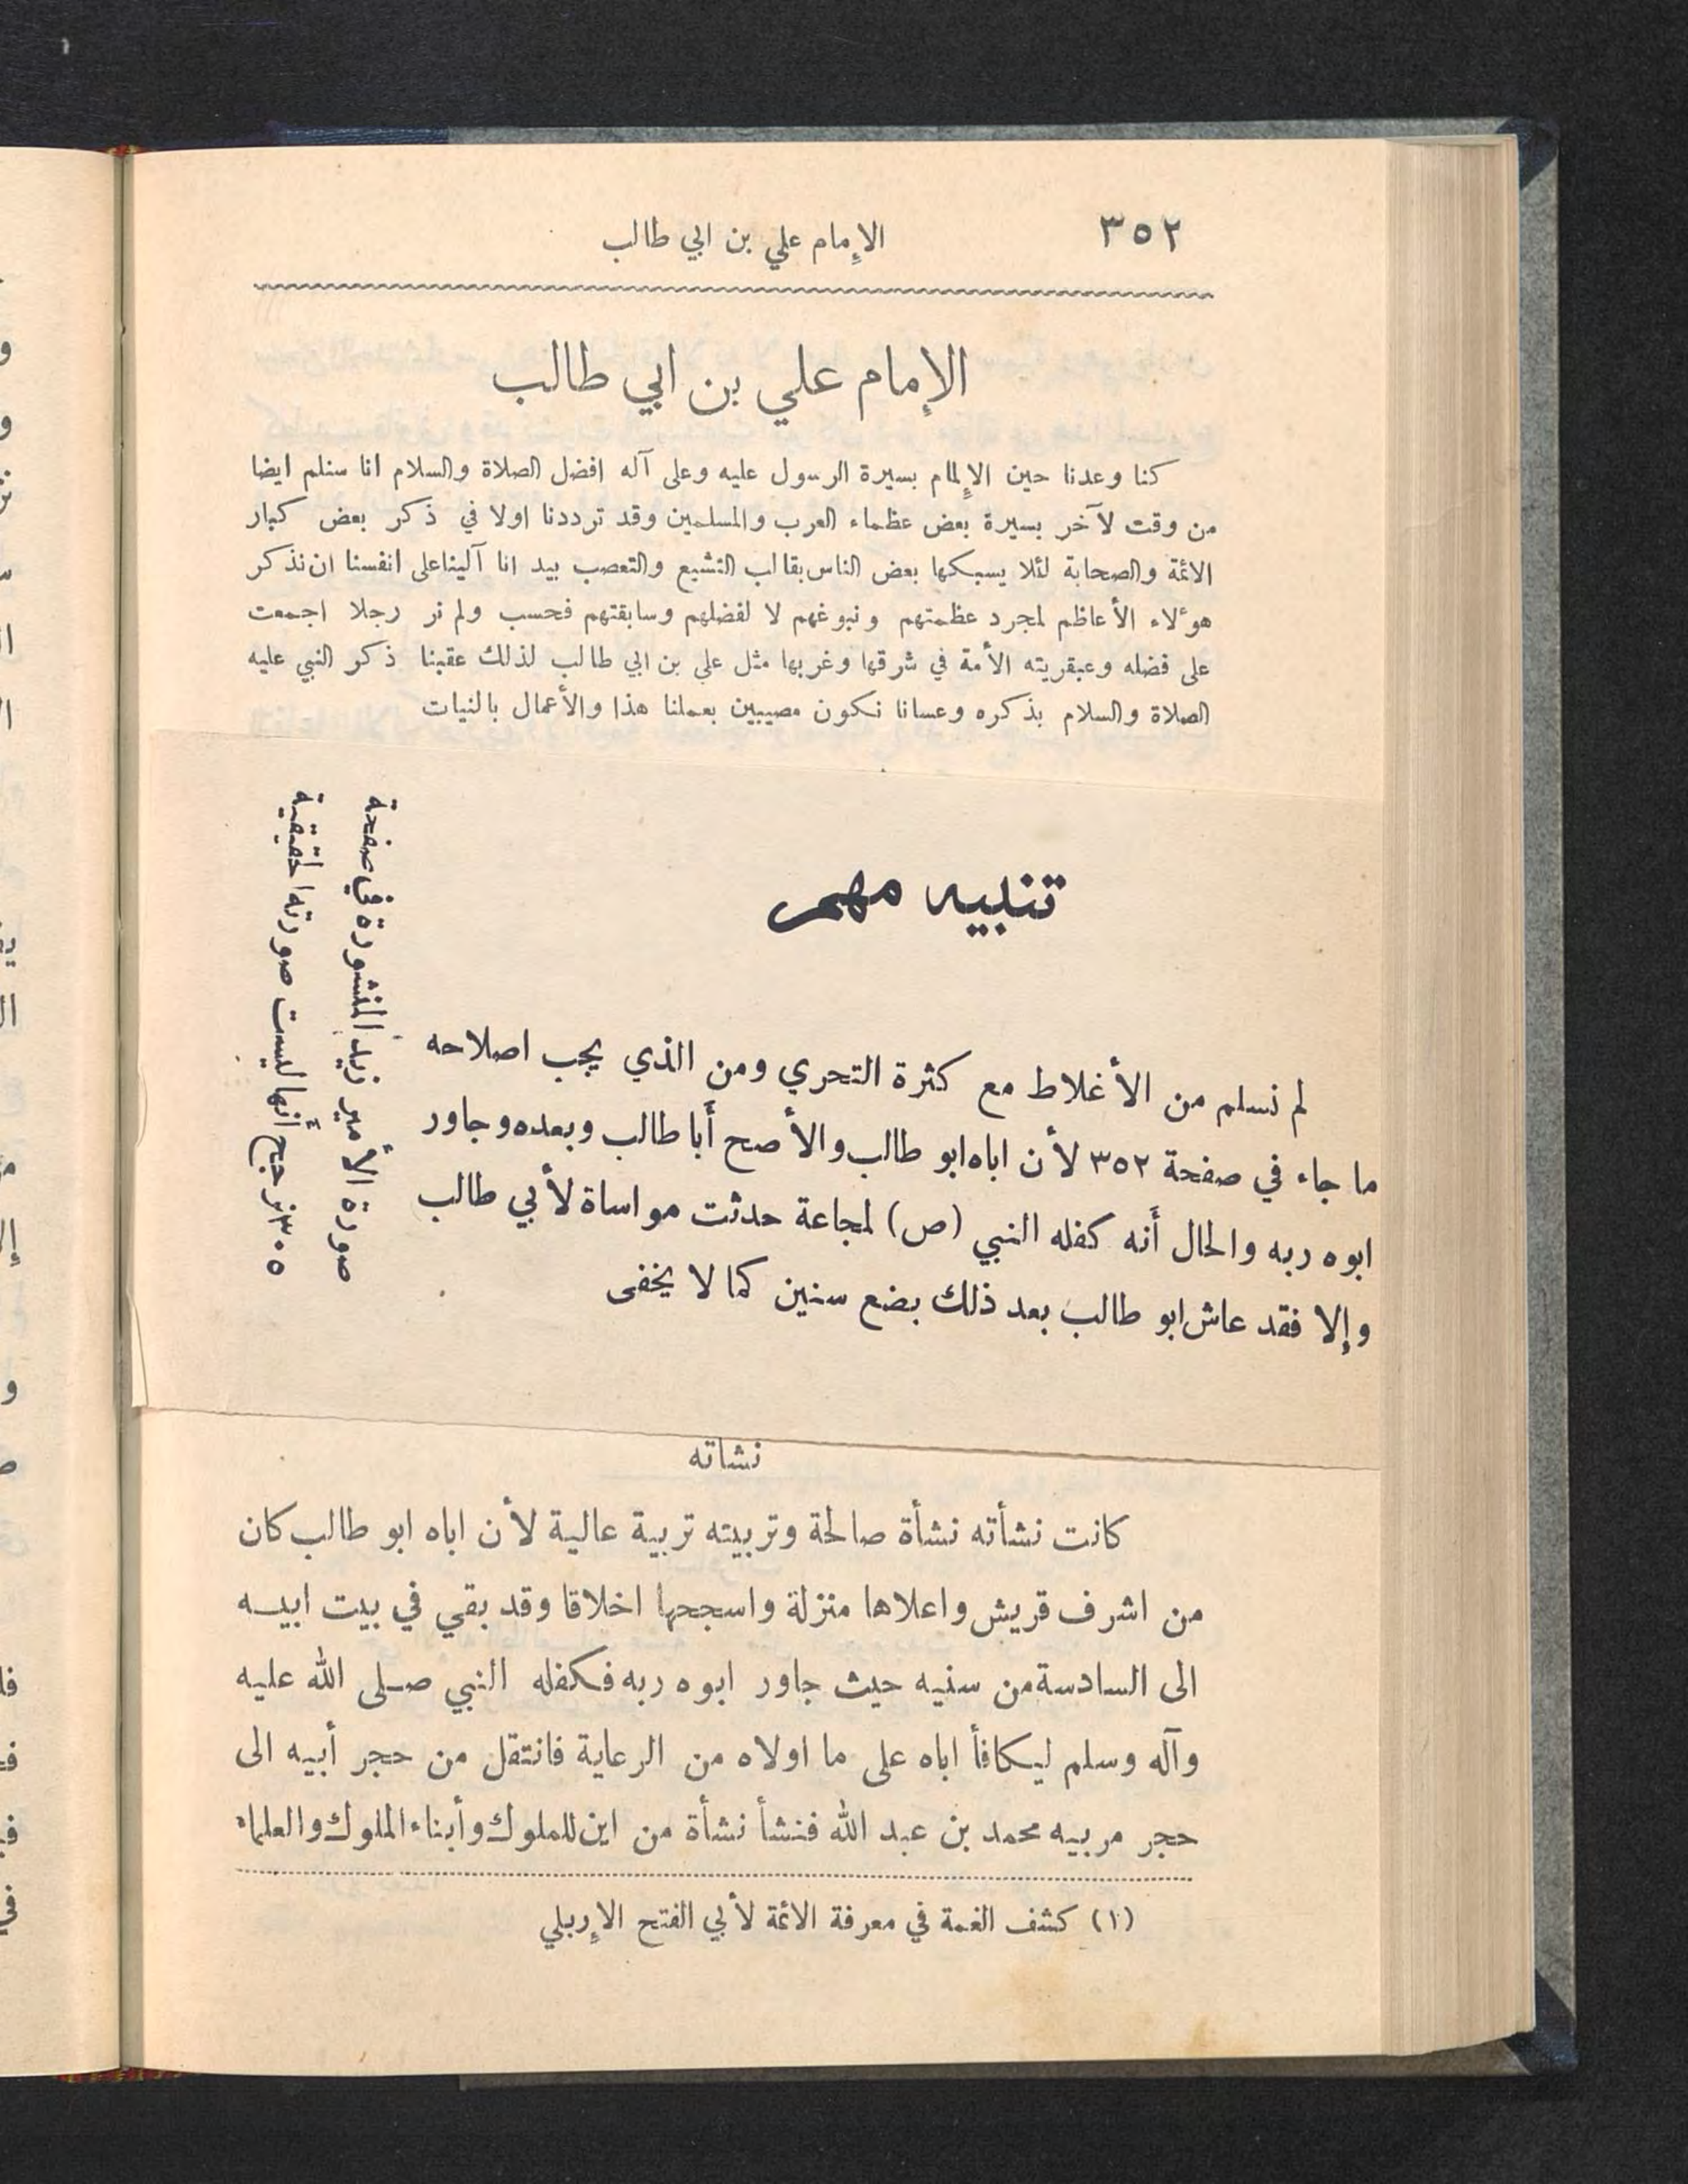 ٣٥٢
الإمام علي بن ابي طالب
الإمام علي بن ابي طالب
كنا وعدنا حين الإلمام بسيرة الرسول عليه وعلى آله افضل الصلاة والسلام انا سنلم ايضا
من وقت لآخر بسيرة بعض عظماء العرب والمسلمين وقد ترددنا اولا في ذكر بعض كبار
الائمة والصحابة لئلا يسبكها بعض الناس بقالب التشيع والتعصب بيد انا آلينا على انفسنا ان نذكر
هؤلاء الأعاظم لمجرد عظمتهم ونبوغهم لا لفضلهم وسابقتهم فحسب ولم نر رجلا اجمعت
على فضله وعبقريته الأمة في شرقها وغربها مثل علي بن ابي طالب لذلك عقبنا ذكر النبي عليه
الصلاة والسلام بذكره وعسانا نكون مصيبين بعملنا هذا والأعمال بالنيات
تنبيه مهم
لم نسلم من الأغلاط مع كثرة التحري ومن الذي يجب اصلاحه
ما جاء في صفحة ٣٥٢ لأن اباه ابو طالب والأصح أَبا طالب وبعده وجاور
ابوه ربه والحال أَنه كفله النبي (ص) لمجاعة حدثت مواساة لأبي طالب
وإلا فقد عاش ابو طالب بعد ذلك بضع سنين كما لا يخفى
صورة الأمير زيد المنشورة في صفحة
٣٠٥ نرجح أنها ليست صورته الحقيقية
نشاته
كانت نشأته نشأة صالحة وتربيته تربية عالية لأن اباه ابو طالب كان
من اشرف قريش واعلاها منزلة واسجحها اخلاقا وقد بقي في بيت ابيه
الى السادسة من سنيه حيث جاور ابوه ربه فكفله النبي صلى الله عليه
وآله وسلم ليكافأ اباه على ما اولاه من الرعاية فانتقل من حجر أبيه الى
حجر مربيه محمد بن عبد الله فنشأ نشأة من اين للملوك وأبناء الملوك والعلماء
(١) كشف الغمة في معرفة الائمة لأبي الفتح الإربلي